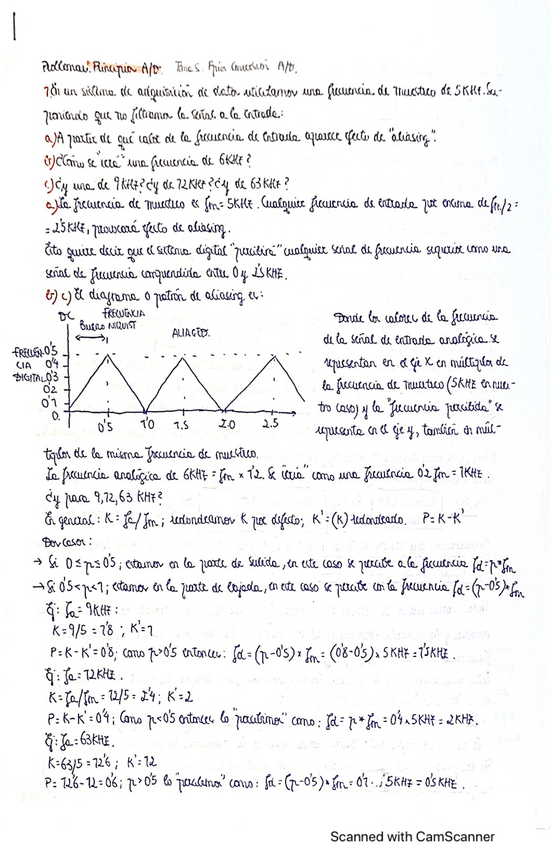 Problemas: Principios A/D. Tema 5. Fpios Conversión A/D.
1) En un sistema de adquisición de datos utilizamos una frecuencia de muestreo de 5KHz. Su-
poniendo que no filtramos la señal a la entrada:
a) A partir de qué valor de la frecuencia de entrada aparece efecto de "aliasing".
b) ¿Cómo se "verá" una frecuencia de 6KHz?
c) ¿y una de 9KHz? ¿y de 12KHz? ¿y de 63KHz?
a) La frecuencia de muestreo es fm = 5KHz. Cualquier frecuencia de entrada por encima de fm/2 =
= 2'5KHz, provocará efecto de aliasing.
Esto quiere decir que el sistema digital "percibirá" cualquier señal de frecuencia superior como una
señal de frecuencia comprendida entre 0 y 2'5KHz.
b) c) El diagrama o patrón de aliasing es:
DC FRECUENCIA
NIQUIST
ALIASED.
FRECUEN
CIA
DIGITAL
0'5
0'4
0'3
0'2
0'1
0.
0'5 1'0 1.5 2.0 2.5
Donde los valores de la frecuencia
de la señal de entrada analógica se
representan en el eje X en múltiplos de
la frecuencia de muestreo (5KHz en nues-
tro caso) y la "frecuencia percibida" se
representa en el eje y, también en múl-
tiplos de la misma frecuencia de muestreo.
La frecuencia analógica de 6KHz = fm x 1'2. Se vería como una frecuencia 0'2 fm = 1KHz.
¿y para 9,12,63 KHz?
En general: K = fa/fm; redondeamos K por defecto; K' = (K) redondeado. P = K-K'
Dos casos:
→ Si 0 ≤ p ≤ 0'5; estamos en la parte de subida, en este caso se percibe a la frecuencia fd = p * fm
→ Si 0'5 < p < 1; estamos en la parte de bajada, en este caso se percibe con la frecuencia fd = (p-0'5) * fm
Ej: fa = 9KHz:
K = 9/5 = 1'8; K' = 1
P = K-K' = 0'8; como p>0'5 entonces: fd = (p-0'5) x fm = (0'8-0'5) x 5KHz = 1'5KHz
Ej: fa = 12KHz.
K = fa/fm = 12/5 = 2'4; K' = 2
P = K-K' = 0'4; Como p<0'5 entonces lo "percibimos" como: fd = p * fm = 0'4 x 5KHz = 2KHz.
Ej: fa = 63KHz.
K = 63/5 = 12'6; K' = 12
P = 12'6-12 = 0'6; p>0'5 lo "percibimos" como: fd = (p-0'5) * fm = 0'1 · 5KHz = 0'5KHz.
Scanned with CamScanner